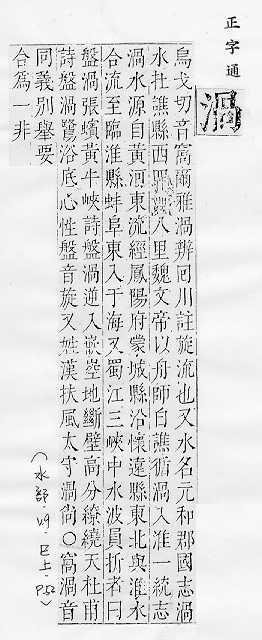 正字通
渦
烏戈切音窩爾雅渦辨回川註旋流也又水名元和郡國志渦
水杜譙縣西八里魏文帝以舟師自譙循渦入淮一統志
渦水源自黃河東流經鳳陽府蒙城縣沿懷遠縣東北與淮水
合流至臨淮縣蚌阜東入于海又蜀江三峽中水波員折者曰
盤渦張蠙黃牛峽詩盤渦逆入嵌空地斷壁高分繚繞天杜甫
詩盤渦鷺浴底心性盤音旋又姓漢扶風太守渦尚○窩渦音
同義別舉要
合爲一非
(水部.49.巳上.P52)